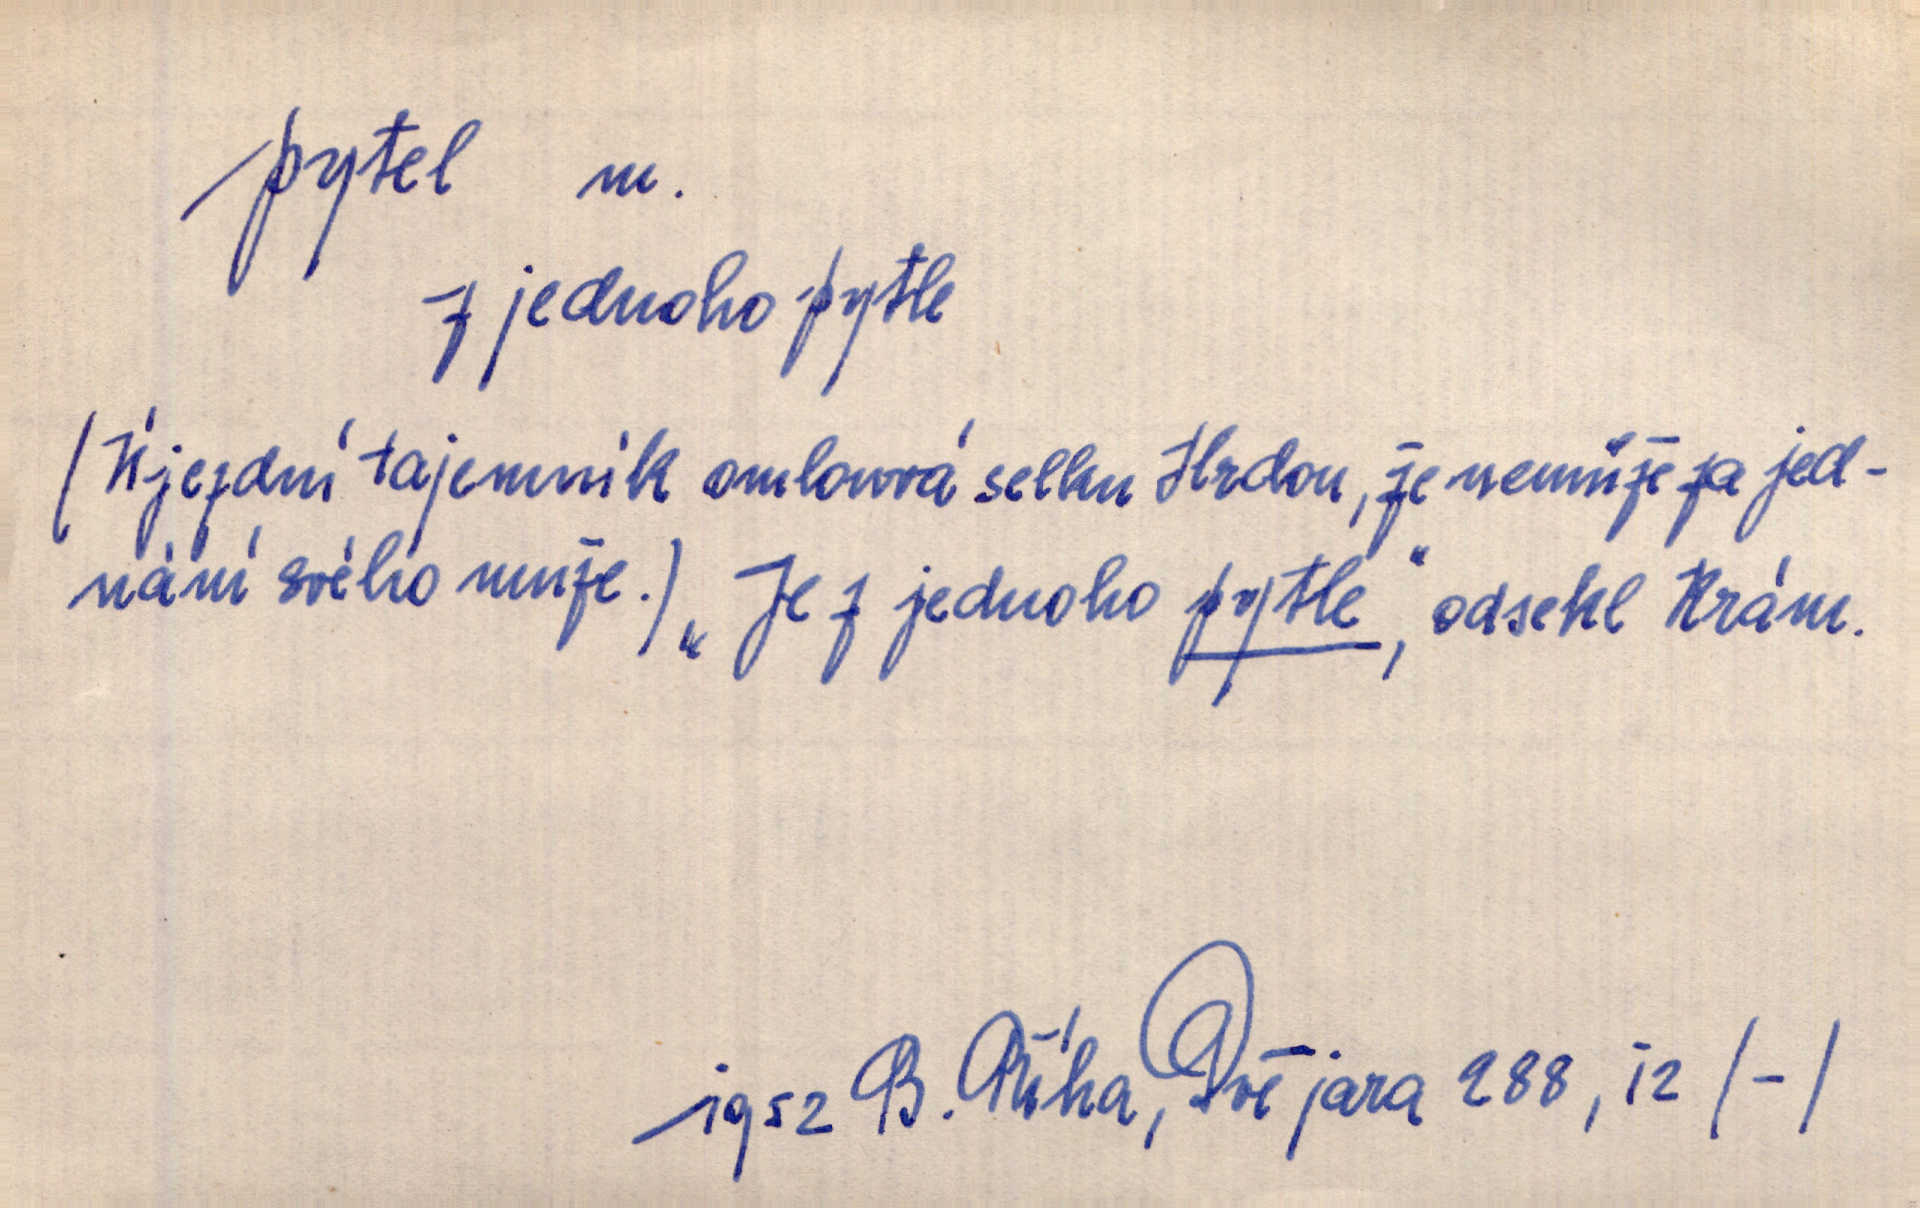 pytel m.
z jednoho pytle
(Újezdní tajemník omlouvá selku Hrdou, že nemůže za jed-
nání svého muže.) „Je z jednoho pytle,“ odsekl Krám.
1952 B. Říha, Dvě jara 288, 12 /-/